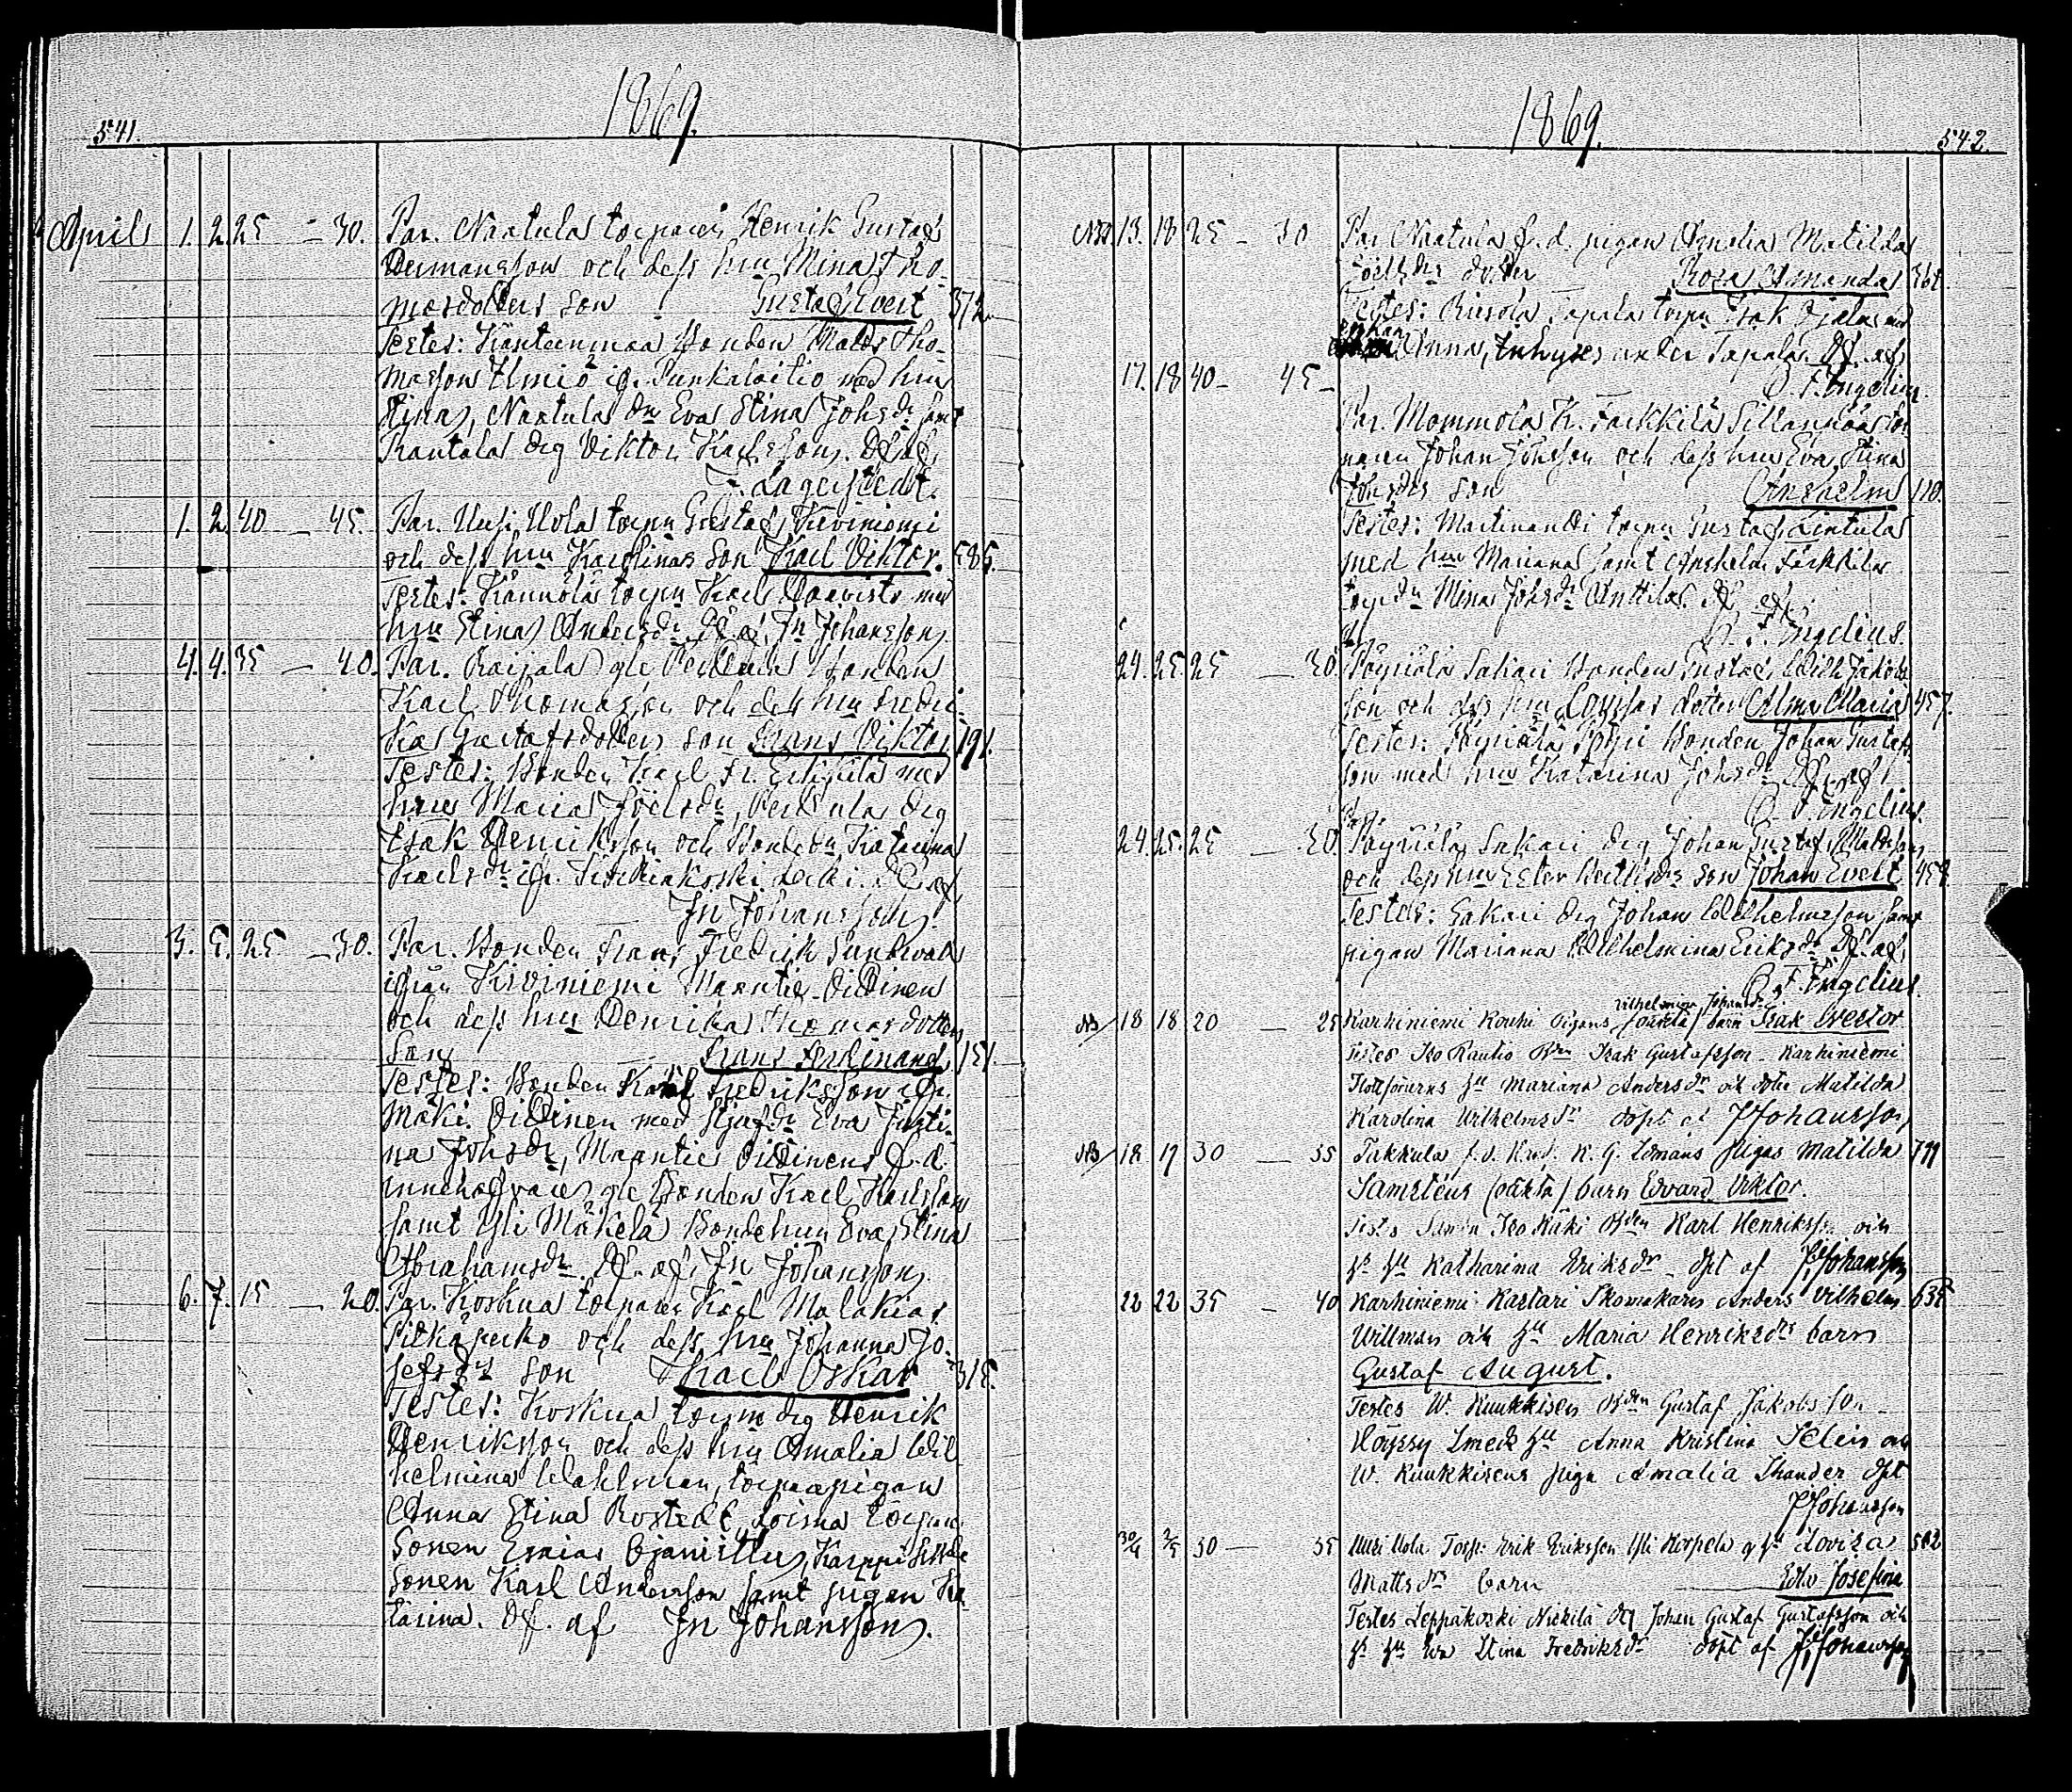 541.
1869.
Aprils 1. 2. 25 — 30. Par. Naatula torparen Henrik Gustaf
Hermansson och dess hru Mina Tho-
masdotters son Gustaf Evert 372.
Testes: Känteenmaa Bonden Matts Tho-
masson Ilmiö ifr. Punkalaitio med hru
Stina, Naatula Eva Stina Johsdr samt
Rantala drg Viktor Karlsson. Df af
F. Lagerstedt.
1. 2. 40 — 45. Par. Uusi Uola torpn Gustaf Kiviniemi
och dess hru Karolinas son Karl Viktor. 585.
Testes: Kannola torpn Karl Haavisto med
hru Stina Andersdr. Df af Jn Johansson
4. 4. 35 — 40. Par. Raijala gle Perttula Bonden
Karl Thomasson och dess hru Fredri-
kas Gustafsdotters son Frans Viktor 191.
Testes: Bonden Karl Fr. Erkkilä med
hru Maria Joelsdr, Perttula drg
Isak Henriksson och Bondedr Katarina
Karlsdr ifr. Df af
Jn Johansson
3. 5. 25 — 30. Par. Bonden Frans Fredrik Sundvall
ifrån Kiviniemi Maantie-Oittinen
och dess hru Henrika Thomasdotters
Son Frans Ferdinand 151.
Testes: Bonden Karl Fredriksson ifr.
Mäki-Oittinen med Eva Justi-
na Johsdr, Maantie Oittinens f.d.
innehafvare gle Bonden Karl Karlsson
samt Yli Mäkelä Bondehru Eva Stina
Abrahamsdr. Df. af. Jn Johansson.
6. 7. 15 — 20. Par. Koskua torparen Karl Malakias
Pitkäperko och dess hru Johanna Jo-
sefsdrs son Karl Oskar 315.
Testes: Koskua torpn drg Henrik
Henriksson och dess hru Amalia Wil-
helmina Wahlman, torparepigan
Anna Stina Rostedt, Loima torpare
Sonen Esaias Karppi
Sonen Karl Andersson samt pigan Ka-
tarina. Df. af Jn Johansson.
1869.
542.
13. 18 25 — 30 Par Naatula f.d. pigan Amalia Matilda
Joelsdrs dotter Rosa Amanda 361.
Testes: Tapala torpn Isak Ojala med
enkan Anna, Inhyses under Tapala. Df. af
F. Ingelius.
17. 18 40 — 45 —
Par. Mommola K. Jaakkilä Sillanpää tor-
paren Johan Johsson och dess hru Eva Stina
Johsdrs son Anshelm 110.
Testes: Martinantti torpn Gustaf Lintula
med hru Mariana samt Anshelm
Mina Johsdr Anttila. Df af
F. Ingelius.
24. 25. 25 — 30. Pöyriälä Sakari Bonden Gustaf Wilh Jakobs-
son och dess hru Lovisas dotter Alma Maria 457.
Testes: Pöyriälä Bonden Johan Gustafs-
son med hru Katarina Johsdr. Df. af
F. Ingelius.
24. 25. 25 — 30. Pöyriälä Sakari drg Johan Gustaf Mattsson
och dess hru Ester son Johan Evert 458.
Testes: Sakari drg Johan Wilhelmsson samt
pigan Mariana Wilhelmina Eriksdr. Df. af
F. Ingelius.
vilhelmina Johansdr
NB/ 18 18 20 — 25 Karhiniemi Kouhi Pigans (oäkta) barn Isak Hector
Testes Iso Rautio Bdn Isak Gustafsson - Karhiniemi
hu Mariana Andersdr och dotr Matilda
Karolina Wilhelmsdr döpt af J Johansson
NB/ 18 19 30 — 35 Takkula f.d. K. G. Edmans Pigas Matilda 799
Samsteus (oäkta) barn Edvard Viktor.
Testes Iso Räki Bden Karl Henriksson och
hs hu Katharina Eriksdr - dpt af J Johansson
22 22 35 — 40 Karhiniemi Kartari Skomakaren Anders Vilhelm 635
Willman och hu Maria Henriksdrs barn
Gustaf August.
Testes W. Kuukkisen Bden Gustaf Jakobsson -
Höyssy Smeds hu Anna Kristina Selin och
W. Kuukkisens piga Amalia Thander dpt
J Johansson
30/4 2/5 30 — 35 Uusi Uola Torp. Erik Eriksson Yli Korpela o hu Lovisa 582
Mattsdrs barn Edla Josefina
Testes Leppäkoski Nickilä drg Johan Gustaf Gustafsson och
hs hu Eva Stina Fredriksdr döpt af J Johansson